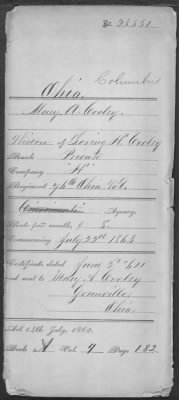 No. 23331
Columbus
Ohio.
Mary A. Cooley
Widow of Loring H. Cooley
Rank Private
Company "H"
Regiment 76th Ohio Vol.
Cincinnati Agency.
Rate per month, $ 8.
Commencing July 22d 1863
Certificate dated June 5"
and sent to Mary A. Cooley
Granville
Ohio.
Act 14th July, 1862.
Book A Vol. 4 Page 182